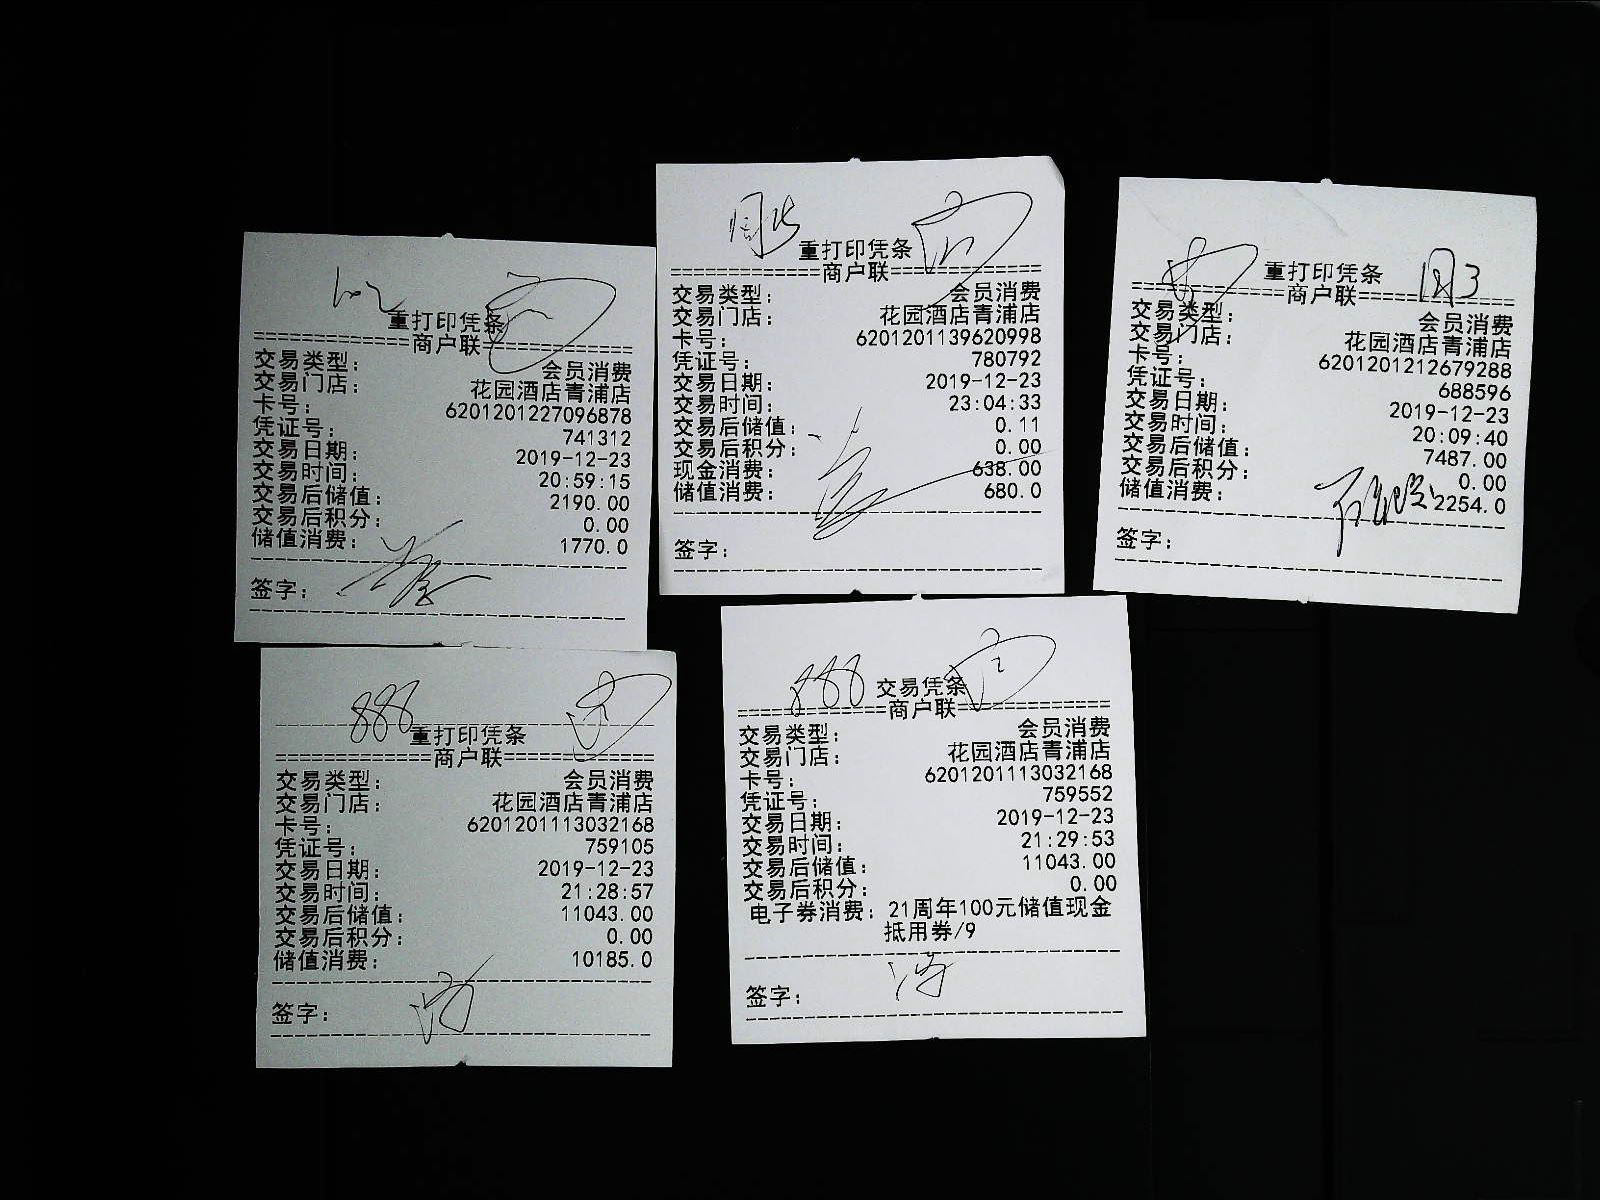 重打印凭条
==========商户联==========
交易类型: 会员消费
交易门店: 花园酒店青浦店
卡号: 6201201227096878
凭证号: 741312
交易日期: 2019-12-23
交易时间: 20:59:15
交易后储值: 2190.00
交易后积分: 0.00
储值消费: 1770.0
签字:
重打印凭条
==========商户联==========
交易类型: 会员消费
交易门店: 花园酒店青浦店
卡号: 6201201139620998
凭证号: 780792
交易日期: 2019-12-23
交易时间: 23:04:33
交易后储值: 0.11
交易后积分: 0.00
现金消费: 638.00
储值消费: 680.0
签字:
重打印凭条
==========商户联==========
交易类型: 会员消费
交易门店: 花园酒店青浦店
卡号: 6201201212679288
凭证号: 688596
交易日期: 2019-12-23
交易时间: 20:09:40
交易后储值: 7487.00
交易后积分: 0.00
储值消费: 2254.0
签字:
888
重打印凭条
==========商户联==========
交易类型: 会员消费
交易门店: 花园酒店青浦店
卡号: 6201201113032168
凭证号: 759105
交易日期: 2019-12-23
交易时间: 21:28:57
交易后储值: 11043.00
交易后积分: 0.00
储值消费: 10185.0
签字:
888
交易凭条
==========商户联==========
交易类型: 会员消费
交易门店: 花园酒店青浦店
卡号: 6201201113032168
凭证号: 759552
交易日期: 2019-12-23
交易时间: 21:29:53
交易后储值: 11043.00
交易后积分: 0.00
电子券消费: 21周年100元储值现金
抵用券/9
签字: